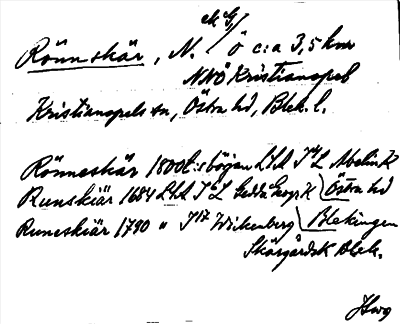 ek. G/
Rönnskär, N. / Ö c:a 3,5 km
NNÖ Kristianopel
Kristianopels sn, Östra hd, Blek. l.
Rönneskär 1800t:s början LSA Abelin K
Runskiär 1684 LSA Gedda Geogr K Östra hd
Runeskiär 1790 " J17 Wickenberg Blekingen
Skärgårdsk Blek.